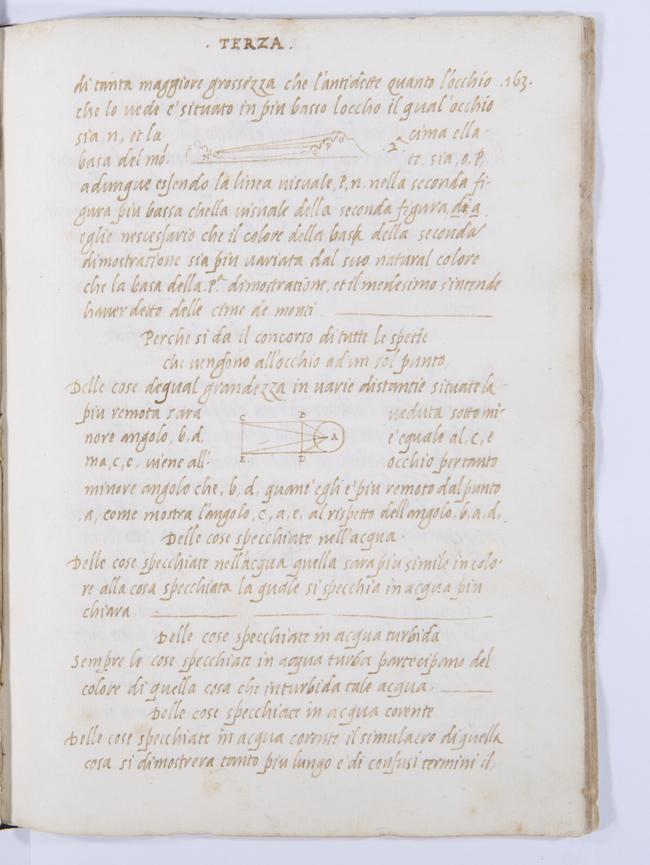 . TERZA .
di tanta maggiore grossezza che l'antidette quanto l'occhio .163.
che lo vede e' situato in piu basso loccho il qual'occhio
sia, n, et la cima ella
basa del mó. .2. te, sia, o, p,
adunque essendo la linea uisuale, P, n, nella seconda fi-
gura piu bassa chella uisuale della seconda figura, di a
eglie nescessario che il colore della basa della seconda
dimostratione sia piu uariata dal suo natural colore
che la basa della .Pª dimostratione, et il medesimo s'intende
hauer detto delle cime de monti
Perche si da il concorso di tutte le spetie
che uengono all'occhio ad un sol punto
Delle cose degual grandezza in uarie distantie situate la
piu remota sara ueduta sotto mi-
C B
nore angolo, b, d, e' eguale al, c, e
A
ma, c, e, uiene all' occhio per tanto
E D
minore angolo che, b, d, quant'egli e' piu remoto dal punto
,a, come mostra l'angolo, c, a, e, al rispetto dell'angolo, b, a, d,
Delle cose specchiate nell'acqua .
Delle cose specchiate nell'acqua quella sara piu simile in colo-
re alla cosa specchiata la quale si specchia in acqua piu
chiara
Delle cose specchiate in acqua turbida
Sempre le cose specchiate in acqua turba partecipano del
colore di quella cosa che inturbida tale acqua.
Delle cose specchiate in acqua corente
Delle cose specchiate in acqua corente il simulacro di quella
cosa si dimostrera tanto piu lungo e di confusi termini il